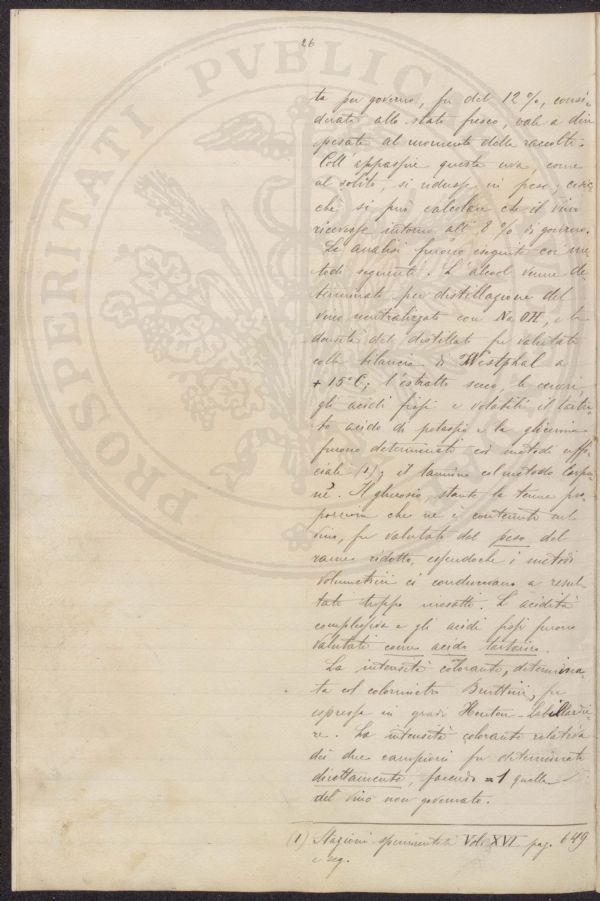 26
ta per governo, fu del 12%, consi-
derata allo stato fresco, vale a dire
pesata al momento della raccolta.
Coll'appassire questa uva, come
al solito, si ridusse in peso, cosic-
chè si può calcolare che il vino
ricevesse intorno all'8% di governo.
Le analisi furono eseguite coi me-
todi seguenti. L'alcool venne de-
terminato per distillazione del
vino neutralizzato con NaOH, e la
densità del distillato fu valutata
colla bilancia di Westphal a
+15°C; l'estratto secco, le ceneri
gli acidi fissi e volatili il tartra-
to acido di potassio e la glicerina
furono determinati coi metodi uffi-
ciali (1); il tannino col metodo Carpe-
nè. Il glucosio, stante la tenue pro-
porzione che ne è contenuta nel
vino, fu valutato dal peso del
rame ridotto, essendochè i metodi
volumetrici ci conducevano a resul-
tati troppo inesatti. L'acidità
complessiva e gli acidi fissi furono
valutati come acido tartarico.
La intensità colorante, determina-
ta col colorimetro fu
espressa in gradi Houton-Labillardiè-
re. La intensità colorante relativa
dei due campioni fu determinata
direttamente, facendo =1 quella
del vino non governato.
(1) Stazioni sperimentali Vol. XVI pag. 649
e seg.
PROSPERITATI PVBLIC